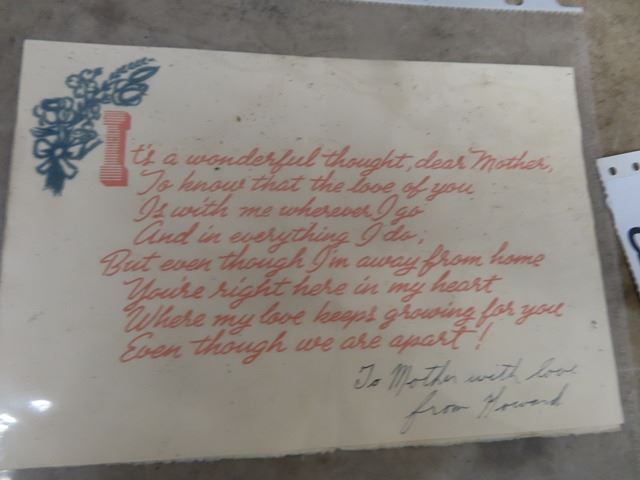 It's a wonderful thought, dear Mother,
To know that the love of you
Is with me wherever I go
And in everything I do;
But even though I'm away from home
You're right here in my heart
Where my love keeps growing for you
Even though we are apart!
To Mother with love
from Howard